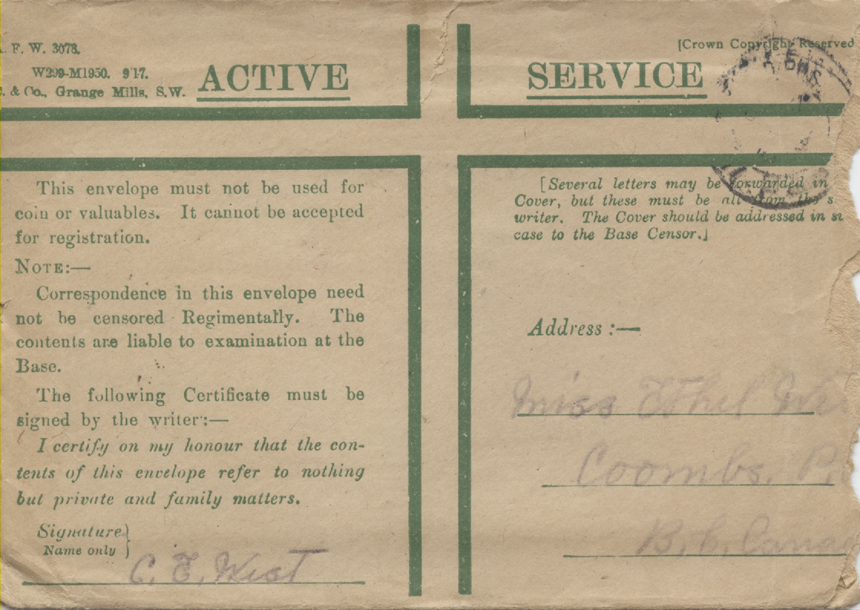 . F. W. 3078.
W299-M1950. 9 17.
& Co., Grange Mills, S.W.
ACTIVE
This envelope must not be used for
coin or valuables. It cannot be accepted
for registration.
NOTE:—
Correspondence in this envelope need
not be censored Regimentally. The
contents are liable to examination at the
Base.
The following Certificate must be
signed by the writer:—
I certify on my honour that the con-
tents of this envelope refer to nothing
but private and family matters.
Signature}
Name only
C. E. West
[Crown Copyright Reserved
SERVICE
[Several letters may be forwarded in
Cover, but these must be all from
writer. The Cover should be addressed in
case to the Base Censor.]
Address :—
Miss Ethel We
Coombs. P.
B.C. Cana